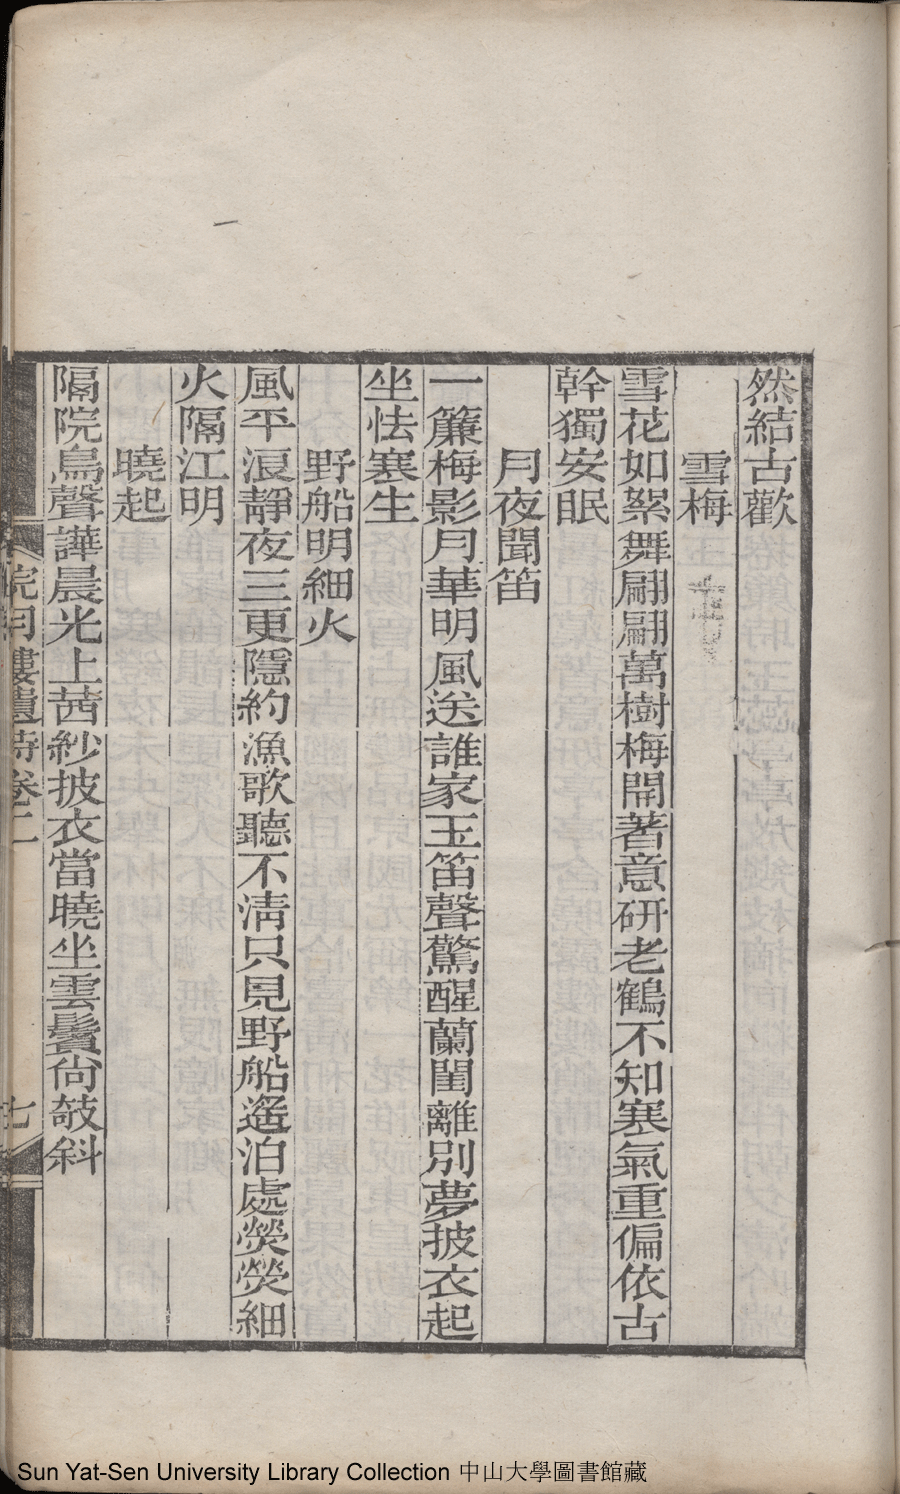 然結古歡
雪梅
雪花如絮舞翩翩萬樹梅開著意研老鶴不知寒氣重偏依古
幹獨安眠
月夜聞笛
一簾梅影月華明風送誰家玉笛聲驚醒蘭閨離別夢披衣起
坐怯寒生
野船明細火
風平浪靜夜三更隱約漁歌聽不淸只見野船遙泊處熒熒細
火隔江明
曉起
隔院鳥聲譁晨光上茜紗披衣當曉坐雲鬢尙攲斜
樓遺詩卷二
七
Sun Yat-Sen University Library Collection 中山大學圖書館藏